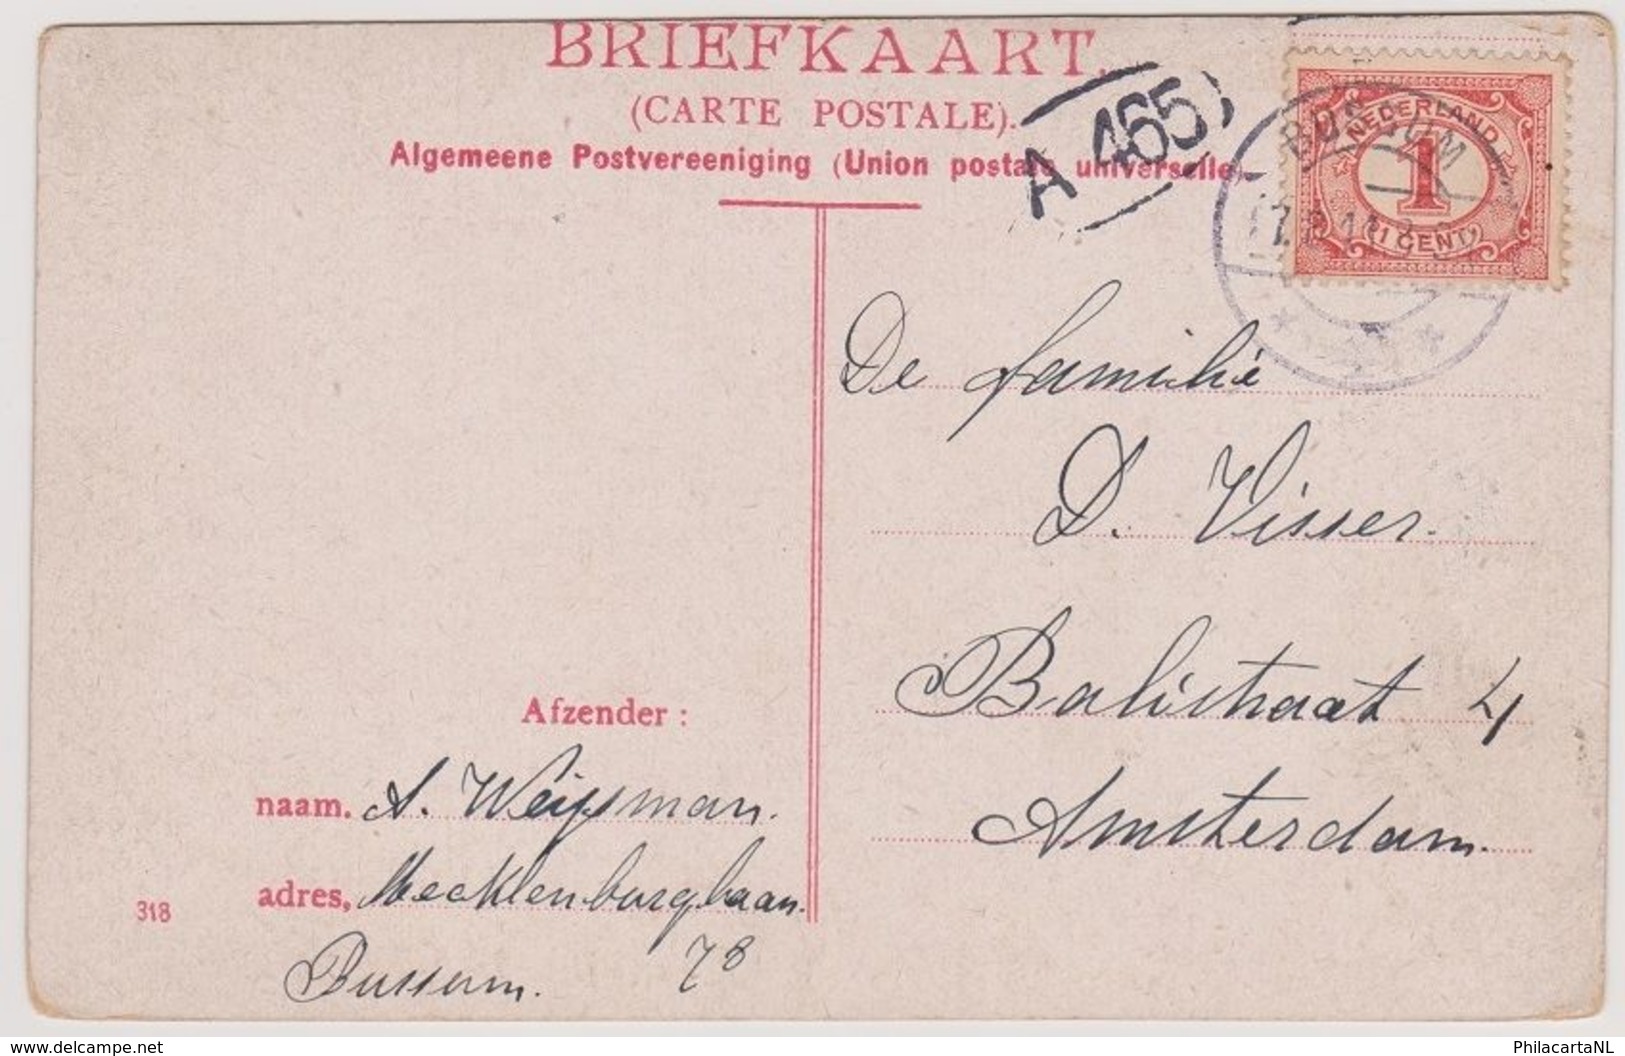 BRIEFKAART.
(CARTE POSTALE).
Algemeene Postvereeniging (Union postale universelle)
A 465
NEDERLAND
1
(1 CENT)
BUSSUM
De familie
D. Visser.
Balistraat 4
Amsterdam.
Afzender:
naam. A. Weijsman.
adres, Mecklenburglaan.
78
Bussum.
318
www.delcampe.net
PhilacartaNL